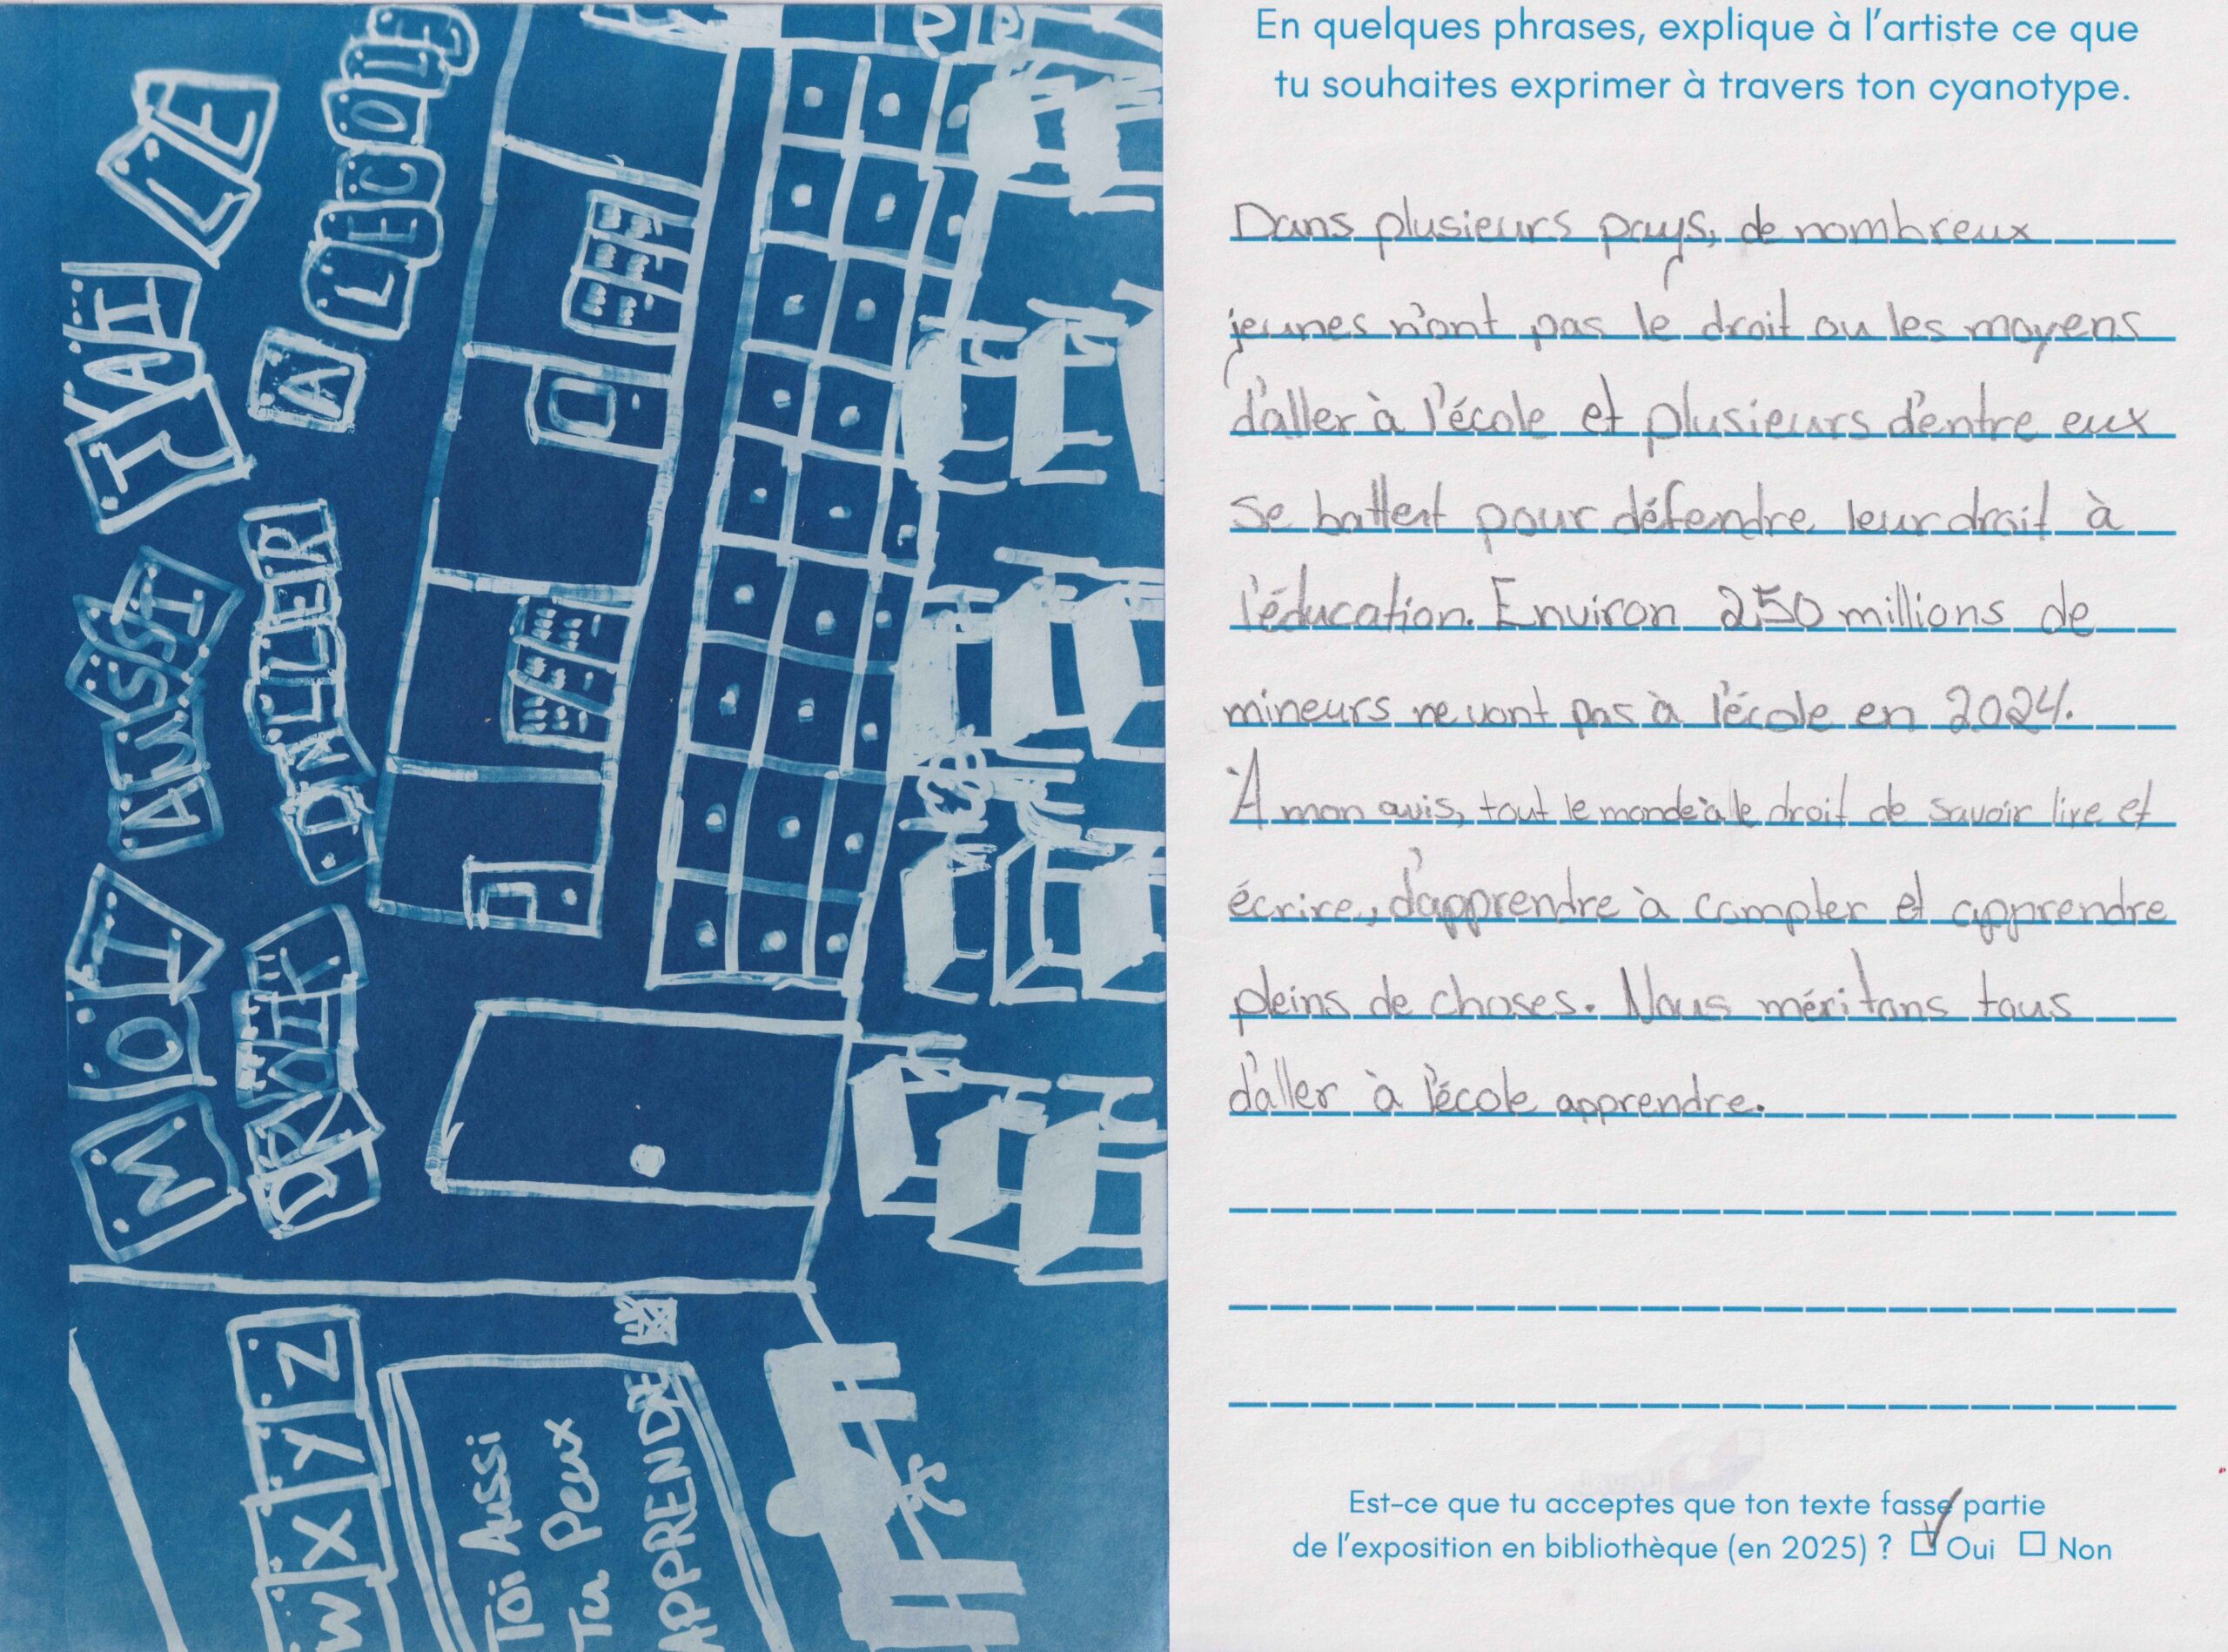 MOI AUSSI J'AI LE
DROIT D'ALLER A L'ECOLE
W X Y Z
Toi Aussi
Tu Peux
APPRENDRE
En quelques phrases, explique à l'artiste ce que
tu souhaites exprimer à travers ton cyanotype.
Dans plusieurs pays, de nombreux
jeunes n'ont pas le droit ou les moyens
d'aller à l'école et plusieurs d'entre eux
se battent pour défendre leur droit à
l'éducation. Environ 250 millions de
mineurs ne vont pas à l'école en 2024.
À mon avis, tout le monde à le droit de savoir lire et
écrire, d'apprendre à compter et apprendre
pleins de choses. Nous méritons tous
d'aller à l'école apprendre.
Est-ce que tu acceptes que ton texte fasse partie
de l'exposition en bibliothèque (en 2025) ? Oui Non